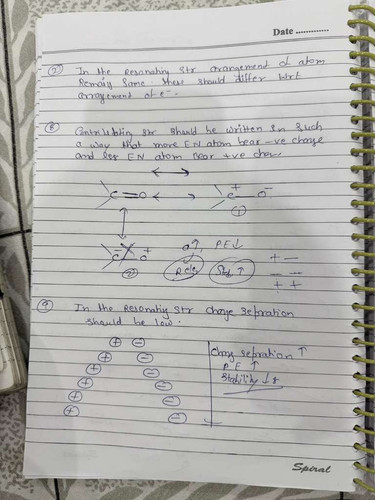 Date .............
② In the Resonating Str arrangement of atom
Remain Same these should differ Wrt
arrangement of e⁻.
③ Contributing Str should be written in such
a way that more EN atom bear -ve charge
and less EN atom bear +ve char
C=O ↔ C⁺—O⁻
①
C⁻ O⁺
②
↑, P.E↓
Stab ↑
+ —
— —
+ +
④ In the Resonating Str charge Separation
should be low.
⊕ ⊖
⊕ ⊖
⊕ ⊖
⊕ ⊖
⊕ ⊖
⊕ ⊖
⊖
Charg separation ↑
P.E ↑
Stability ↓
Spiral